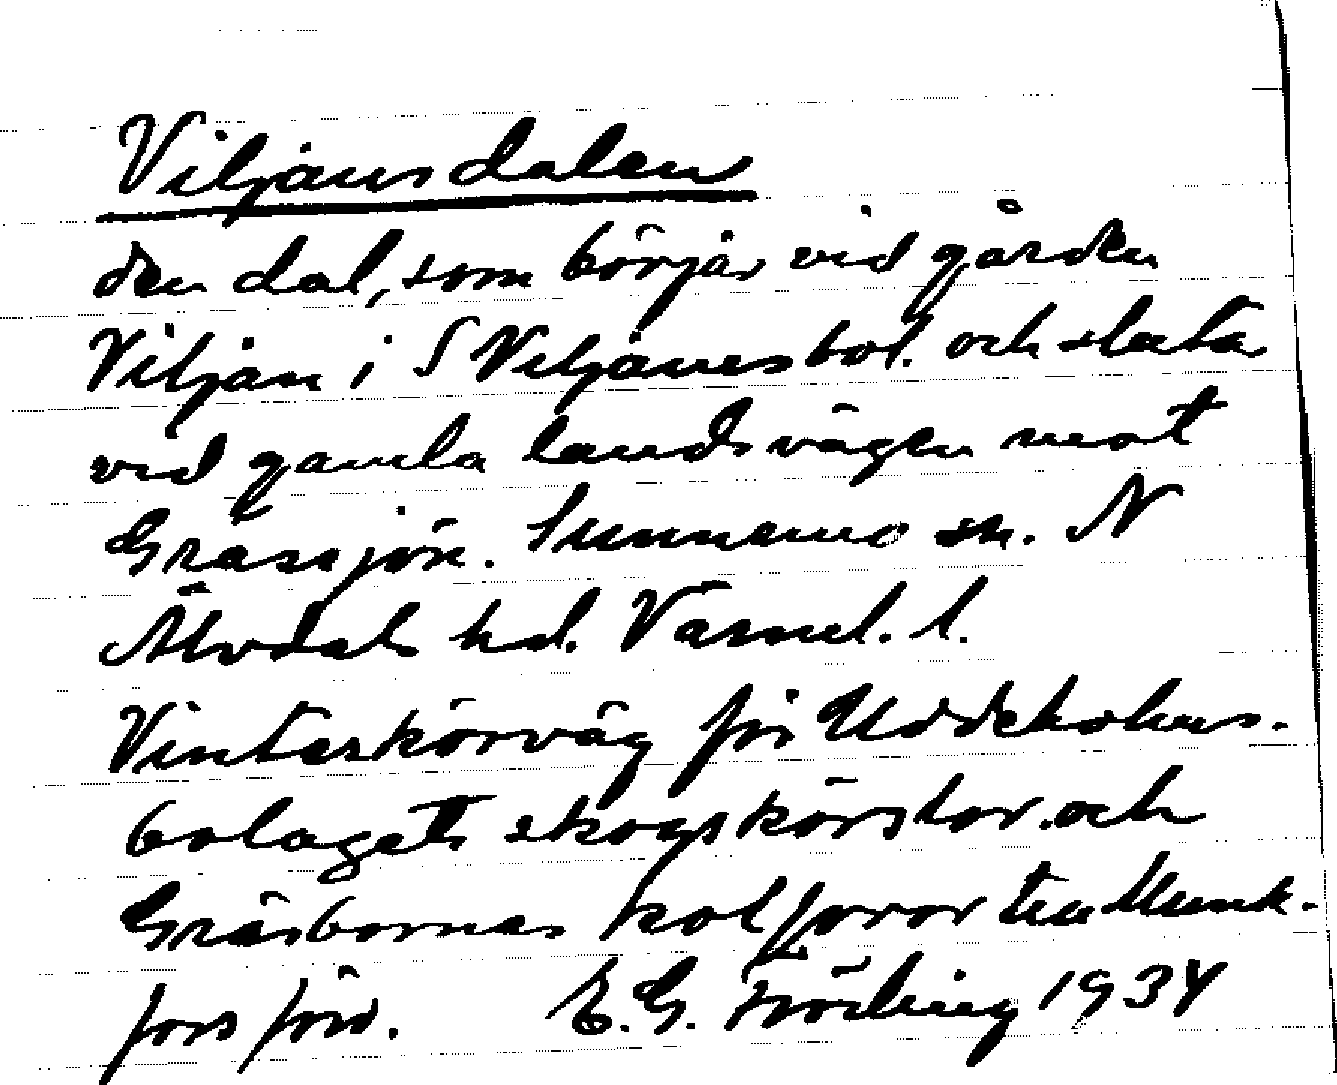 Viljansdalen
den dal, som börjar vid gården
Viljan i S Viljanesbol. och slutar
vid gamla landsvägen mot
Grässjön. Sunnemo sn. N
Älvdals hd. Värml. l.
Vinterkörväg för Uddeholms-
bolagets skogskörslor. och
Gräsbornas kolforor till Munk-
fors förr. E. G. Fröding 1934